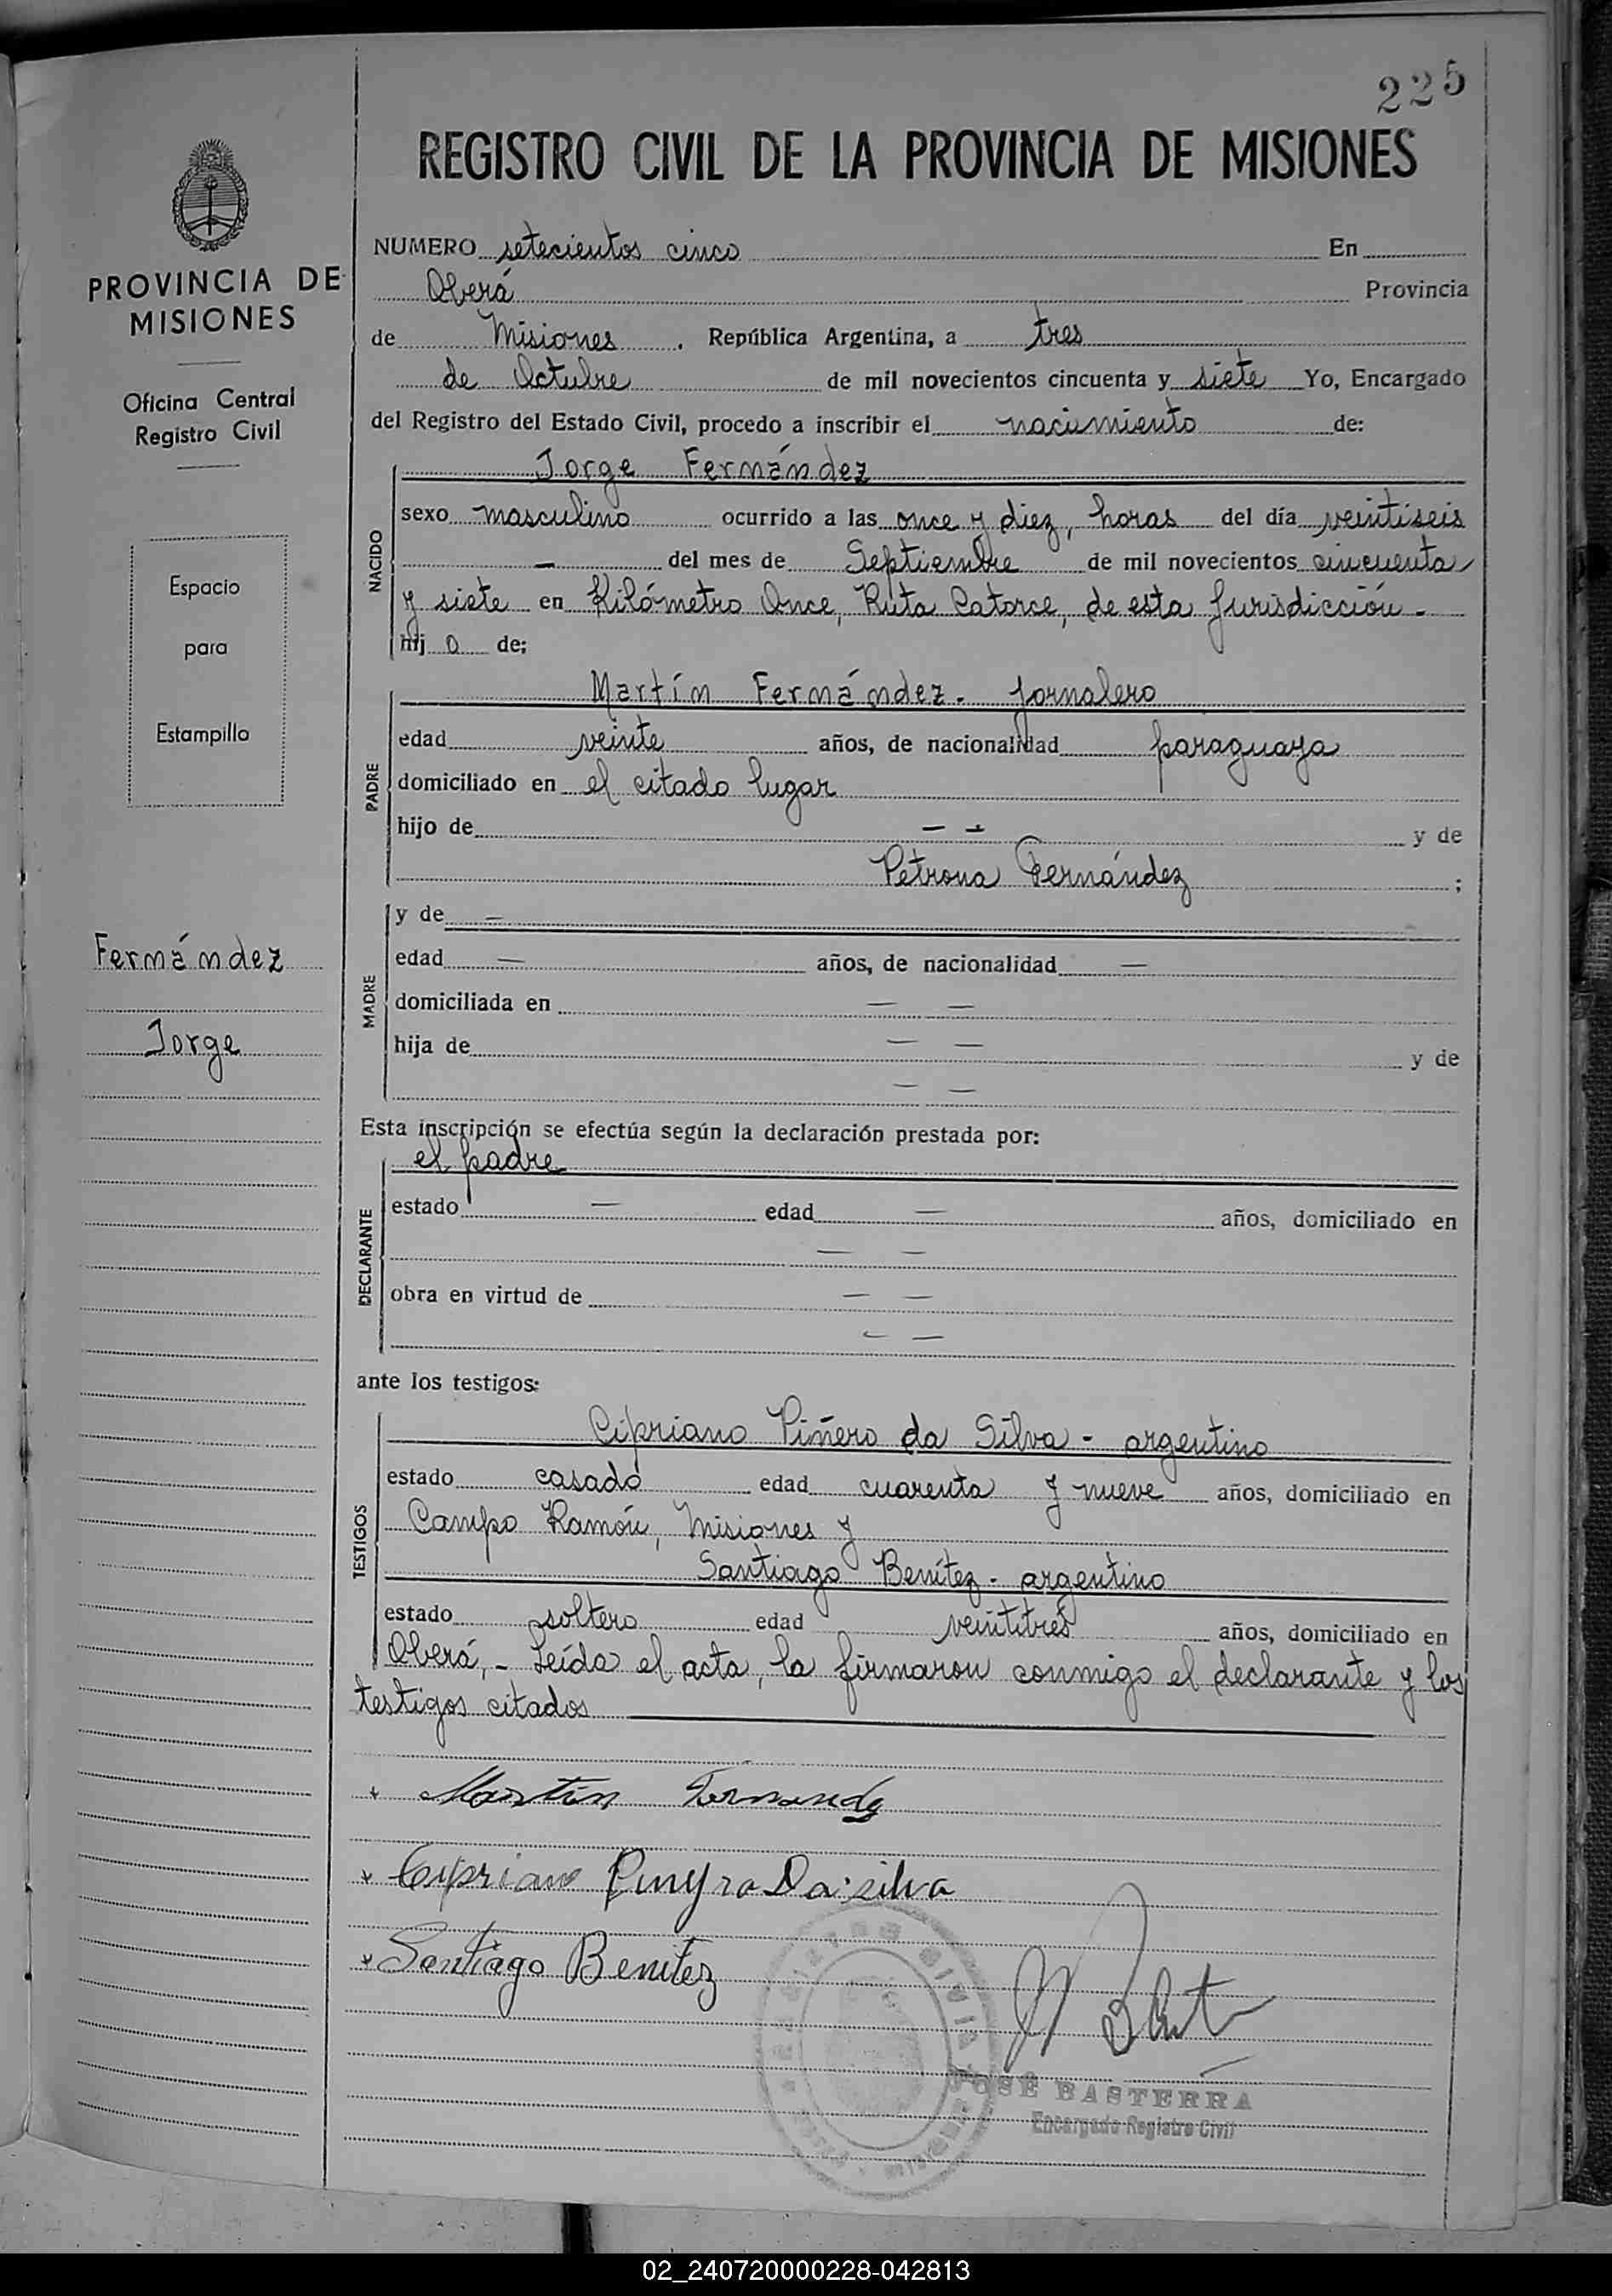 225
REGISTRO CIVIL DE LA PROVINCIA DE MISIONES
PROVINCIA DE
MISIONES
Oficina Central
Registro Civil
Espacio
para
Estampillo
Fernández
Jorge
NUMERO setecientos cinco En
Oberá Provincia
de Misiones. República Argentina, a tres
de Octubre de mil novecientos cincuenta y siete Yo, Encargado
del Registro del Estado Civil, procedo a inscribir el nacimiento de:
NACIDO
Jorge Fernández
sexo masculino ocurrido a las once y diez, horas del día veintiseis
— del mes de Septiembre de mil novecientos cincuenta
y siete en Kilómetro Once, Ruta Catorce, de esta Jurisdicción.-
hij o de;
PADRE
Martín Fernández. Jornalero
edad veinte años, de nacionalidad paraguaya
domiciliado en el citado lugar
hijo de — — y de
Petrona Fernández ;
MADRE
y de —
edad — años, de nacionalidad —
domiciliada en — —
hija de — — y de
— —
Esta inscripción se efectúa según la declaración prestada por:
DECLARANTE
el padre
estado — edad — años, domiciliado en
— —
obra en virtud de — —
— —
ante los testigos:
TESTIGOS
Cipriano Piñero da Silva - argentino
estado casado edad cuarenta y nueve años, domiciliado en
Campo Ramón, Misiones y
Santiago Benítez - argentino
estado soltero edad veintitres años, domiciliado en
Oberá,- Leída el acta, la firmaron conmigo el declarante y los
testigos citados
Martin Fernandez
Cipriano Pinyro Da silva
Santiago Benitez
JOSÉ BASTERRA
Encargado Registro Civil
02_240720000228-042813